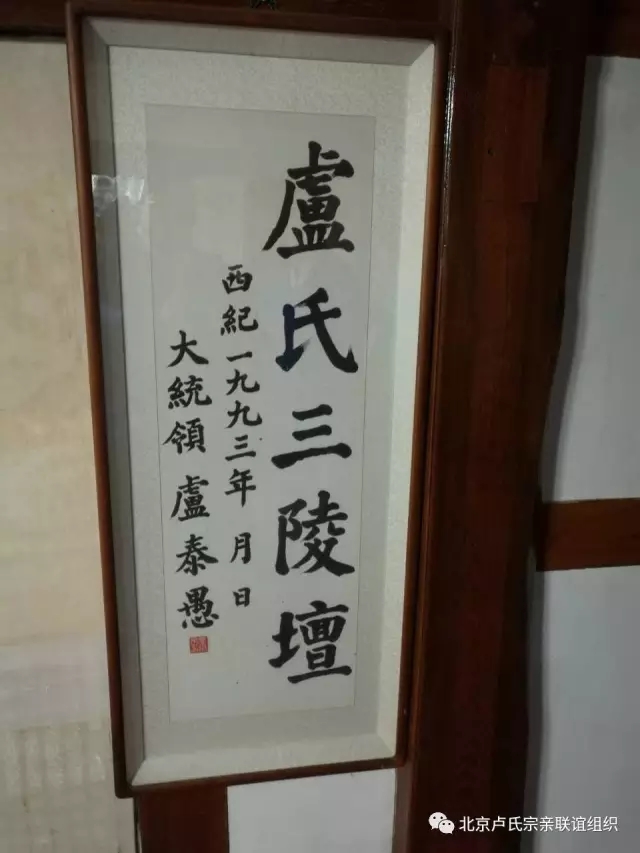 盧氏三陵壇
西紀一九九三年 月 日
大統領 盧泰愚
北京卢氏宗亲联谊组织